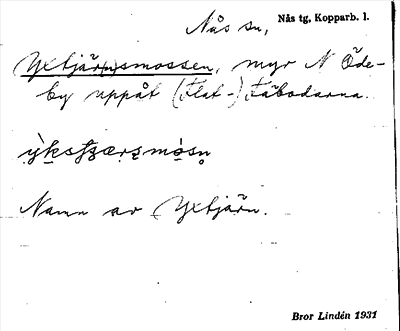 Nås sn, Nås tg, Kopparb. l.
Yxtjär(n)smossen, myr N Öde-
by uppåt (Flat-) Fäbodarna.
Namn av Yxtjärn.
Bror Lindén 1931